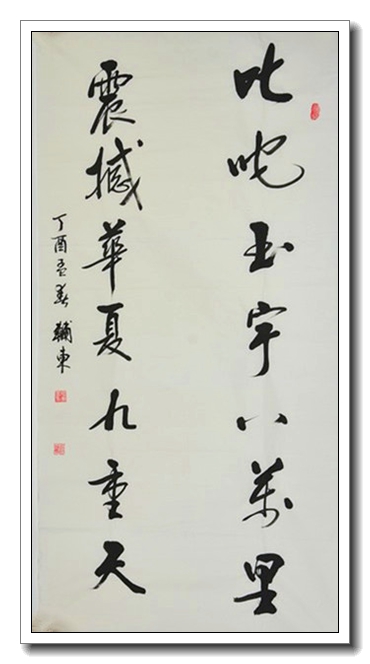 叱咤玉宇八萬里
震撼華夏九重天
丁酉孟春 輔東